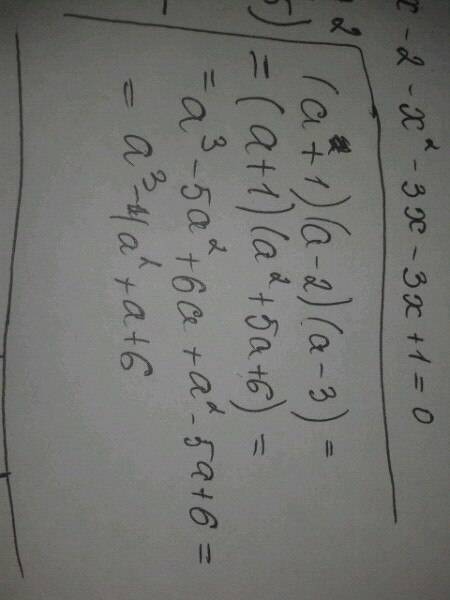 x - 2 - x² - 3x - 3x + 1 = 0
2
5)
(a + 1)(a - 2)(a - 3) =
= (a + 1)(a² + 5a + 6) =
= a³ - 5a² + 6a + a² - 5a + 6 =
= a³ - 4a² + a + 6